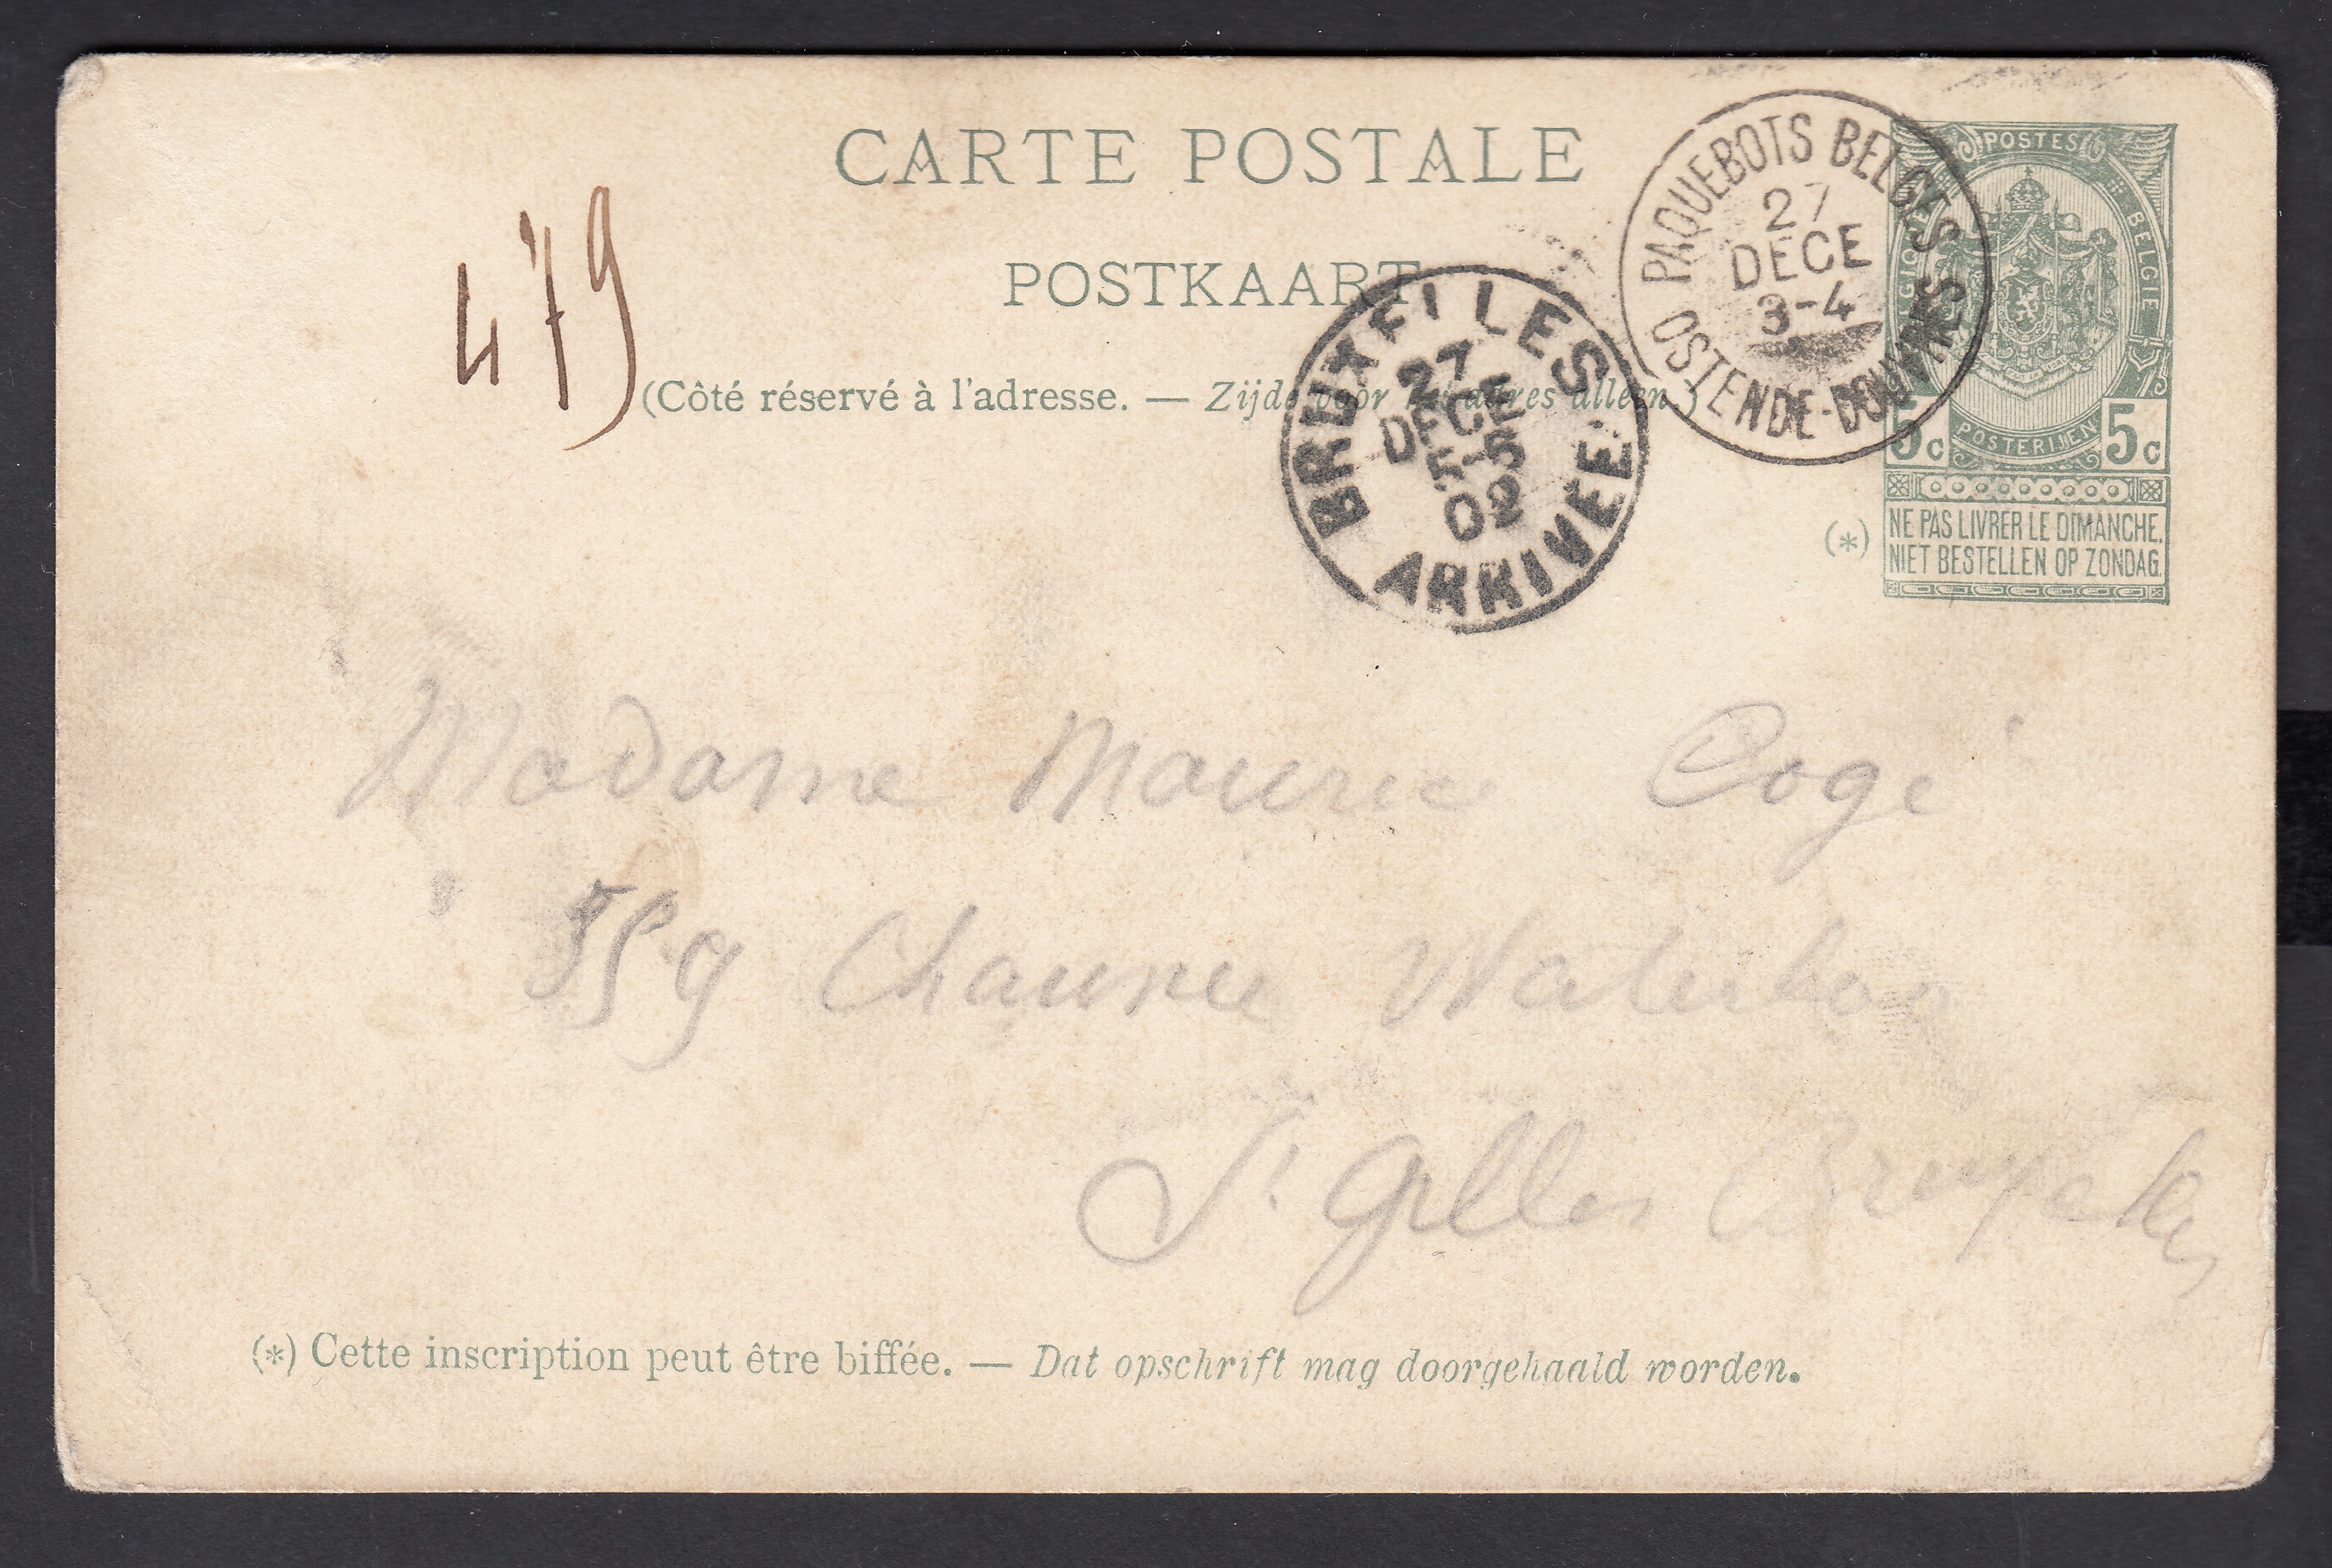 CARTE POSTALE
POSTKAART
(Côté réservé à l'adresse. — Zijde voor het adres alleen.)
479
PAQUEBOTS BELGES
27
DECE
3-4
OSTENDE-DOUVRES
BRUXELLES
27
DECE
5-6
02
ARRIVEE
POSTES
BELGIQUE
BELGIË
POSTERIJEN
5c 5c
(*) NE PAS LIVRER LE DIMANCHE.
NIET BESTELLEN OP ZONDAG.
Madame Maurice
559 Chaussee Waterloo
St Gilles Bruxelles
(*) Cette inscription peut être biffée. — Dat opschrift mag doorgehaald worden.